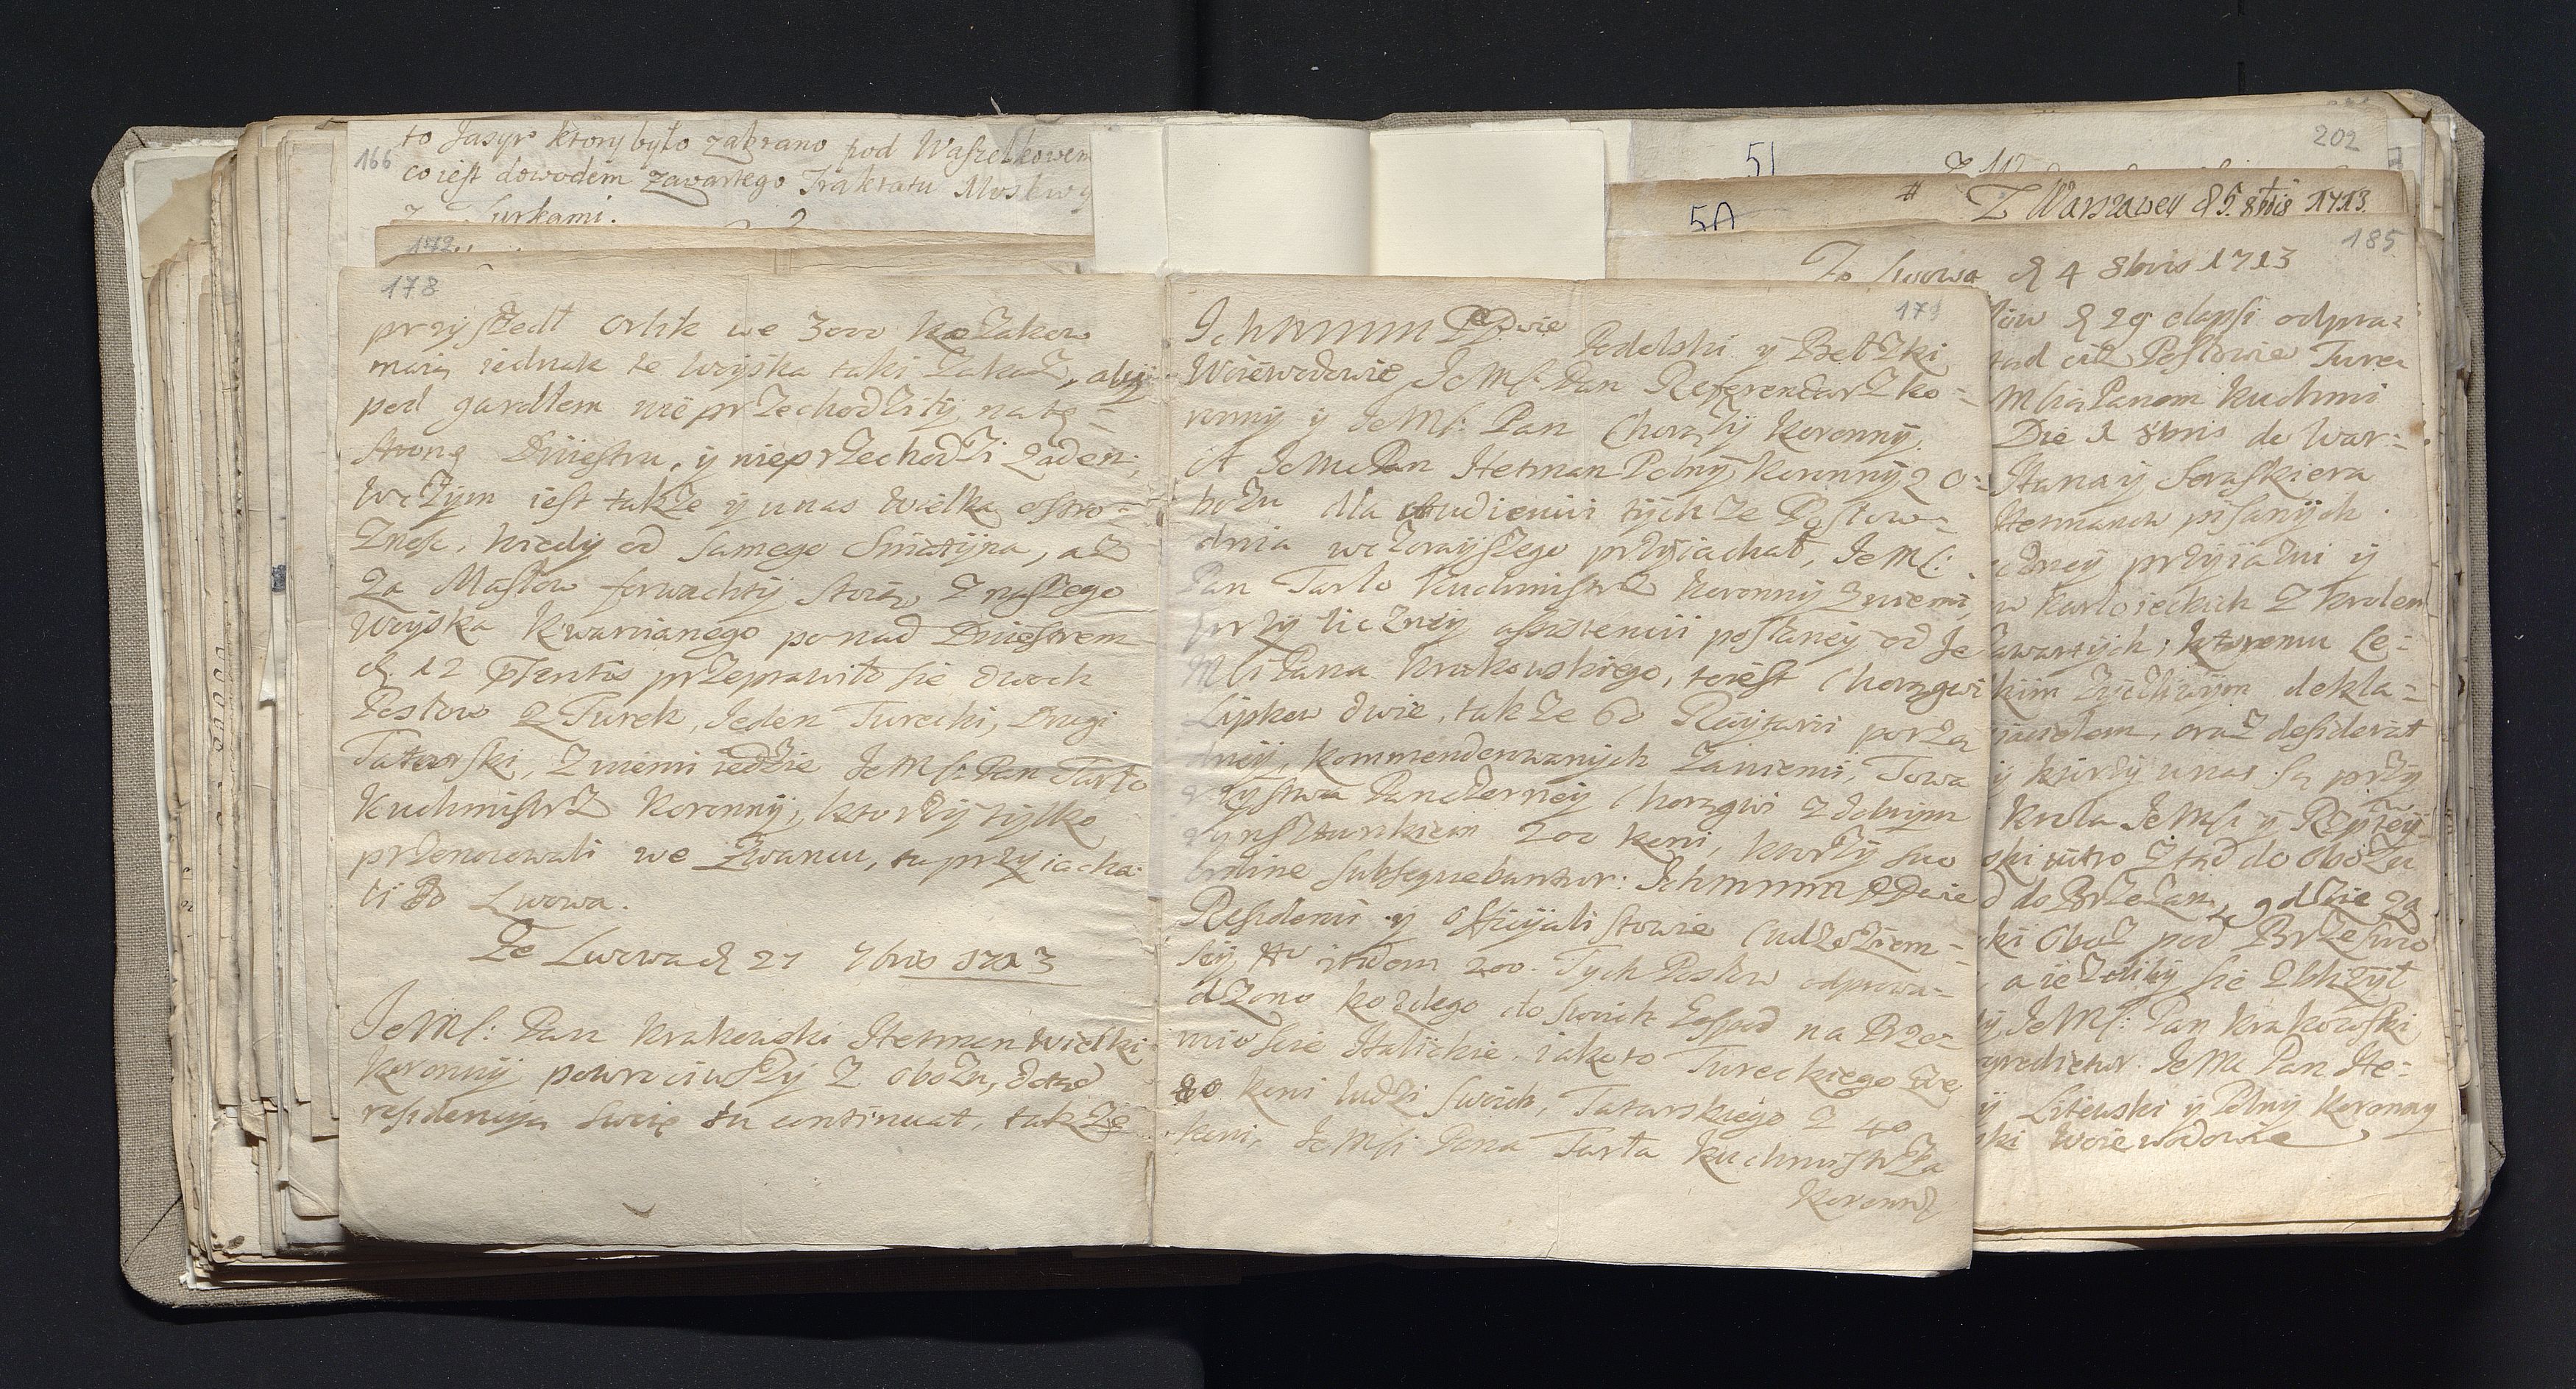 166
to Jasyr ktory było zabrano pod Waszelkowem
co iest dowodem zawartego Traktatu Moskwy
z Turkami.
172
178
przyszedł Orlik we 3000 kozakow
maią iednak te woyska taki zakaz, aby
pod gardłem nie przechodziły na tę=
stronę Dniestru, y nieprzechodzi żaden,
wczym iest także y unas wielka ostro=
znosc, kiedy od samego Sniatyna, aż
za Masłow ferwachty stoią z naszego
woyska kwarcianego ponad Dniestrem
d. 12 psentis przeprawiło sie dwoch
Posłow z Turek, Jeden Turecki, Drugi
Tatarski, z niemi iedzie JeMś: Pan Tarło
Kuchmistrz Koronny, ktorzy tylko
przenocowali we Zwancu, tu przyiacha=
li do Lwowa.
Ze Lwowa d 27 7bris 1713
JeMś: Pan Krakowski Hetman wielki
Koronny powrociwszy z obozu, dotąd
residencyą swoię tu continuat, także
179
Ichmmmm PPwie Podolski y Bełzki
Woiewodowie JeMś: Pan Referendarz ko=
ronny y JeMś: Pan Chorąży Koronny.
A JeMc Pan Hetman Polny Koronny z o=
bozu dla audiencii tychże Posłow=
dnia wczorayszego przyiachał, JeMś:
Pan Tarło Kuchmistrz Koronny z niemi,
przy liczney assistencii posłaney od Je
Mści Pana Krakowskiego, toiest Chorągwi
Lipkow dwie, także 60 Raytarii porżą
dney, kommenderowanych zaniemi, Towa
rzystwa Pancerney Chorągwi z dobrym
rynsztunkiem 200 koni, ktorzy suo
ordine subsequebantur: Ichmmmm PPwie
Residenci y Officyalistowie Cudzoziem=
scy itidem 200. Tych Posłow odprowa=
dzono kożdego do swoich Gospod na Przed=
miescie Halickie, iako to Tureckiego we
80 koni ludzi swoich, Tatarskiego z 40
koni, JeMści Pana Tarła Kuchmistrza
Koronne
51
202
50
# Z Warszawy d 5. 8bris 1713.
185
Ze Lwowa d 4 8bris 1713
d 29 elapsi odpra=
ciż Posłowie Turec
Mścią Panem Kuchmi
Die 1 8bris do War=
Hana y Seraskiera
Hetmanow pisanych.
przyiazni y
Karłowieckich z Krolem
zawartych, ktoremu Ce=
kim życzliwym dekla=
oraz desiderat
y ktorzy unas są przy
Krola JeMści y Rzptey
ski iutro ztąd do obozu
do Brzezan, gdzie za
ki Oboz pod Brzescio
, a ieżeliby sie zbliżył
JeMś: Pan Krakowski
JeMc Pan He=
Litewski y Polny Koronny
ski Woiewodowie